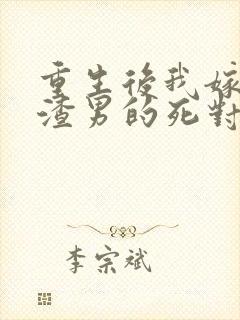 重生後我嫁
渣男的死對
李宗斌